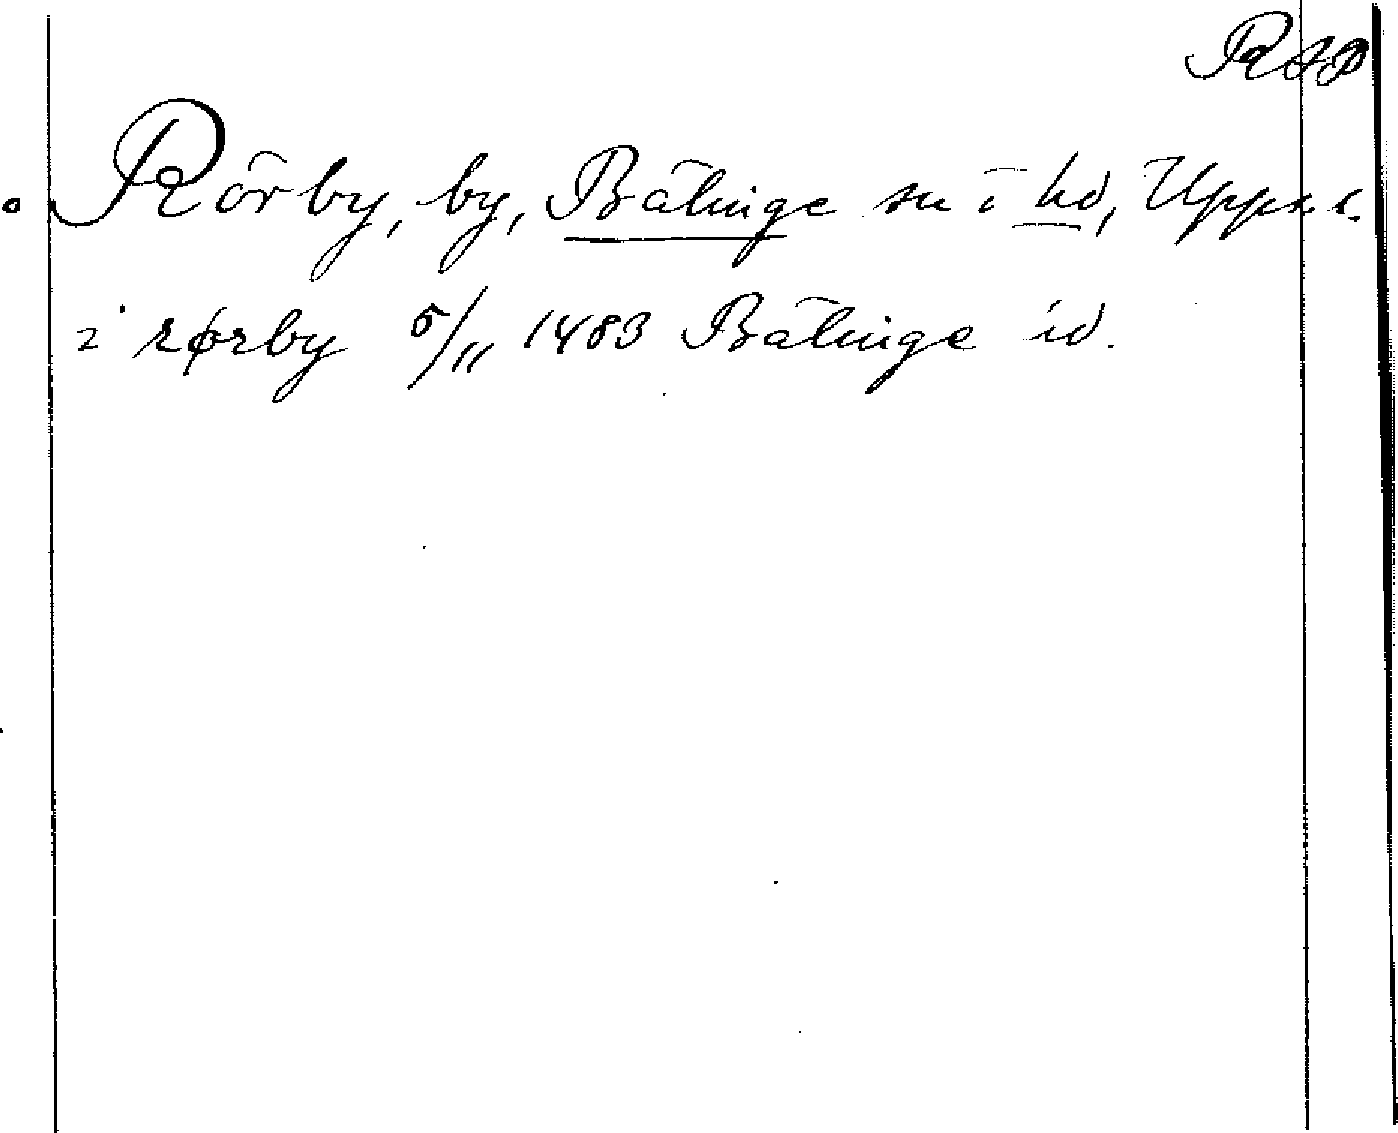 RAP
Rörby, by, Bälinge sn i hd, Upps. l.
i rørby 5/11 1483 Bälinge id.